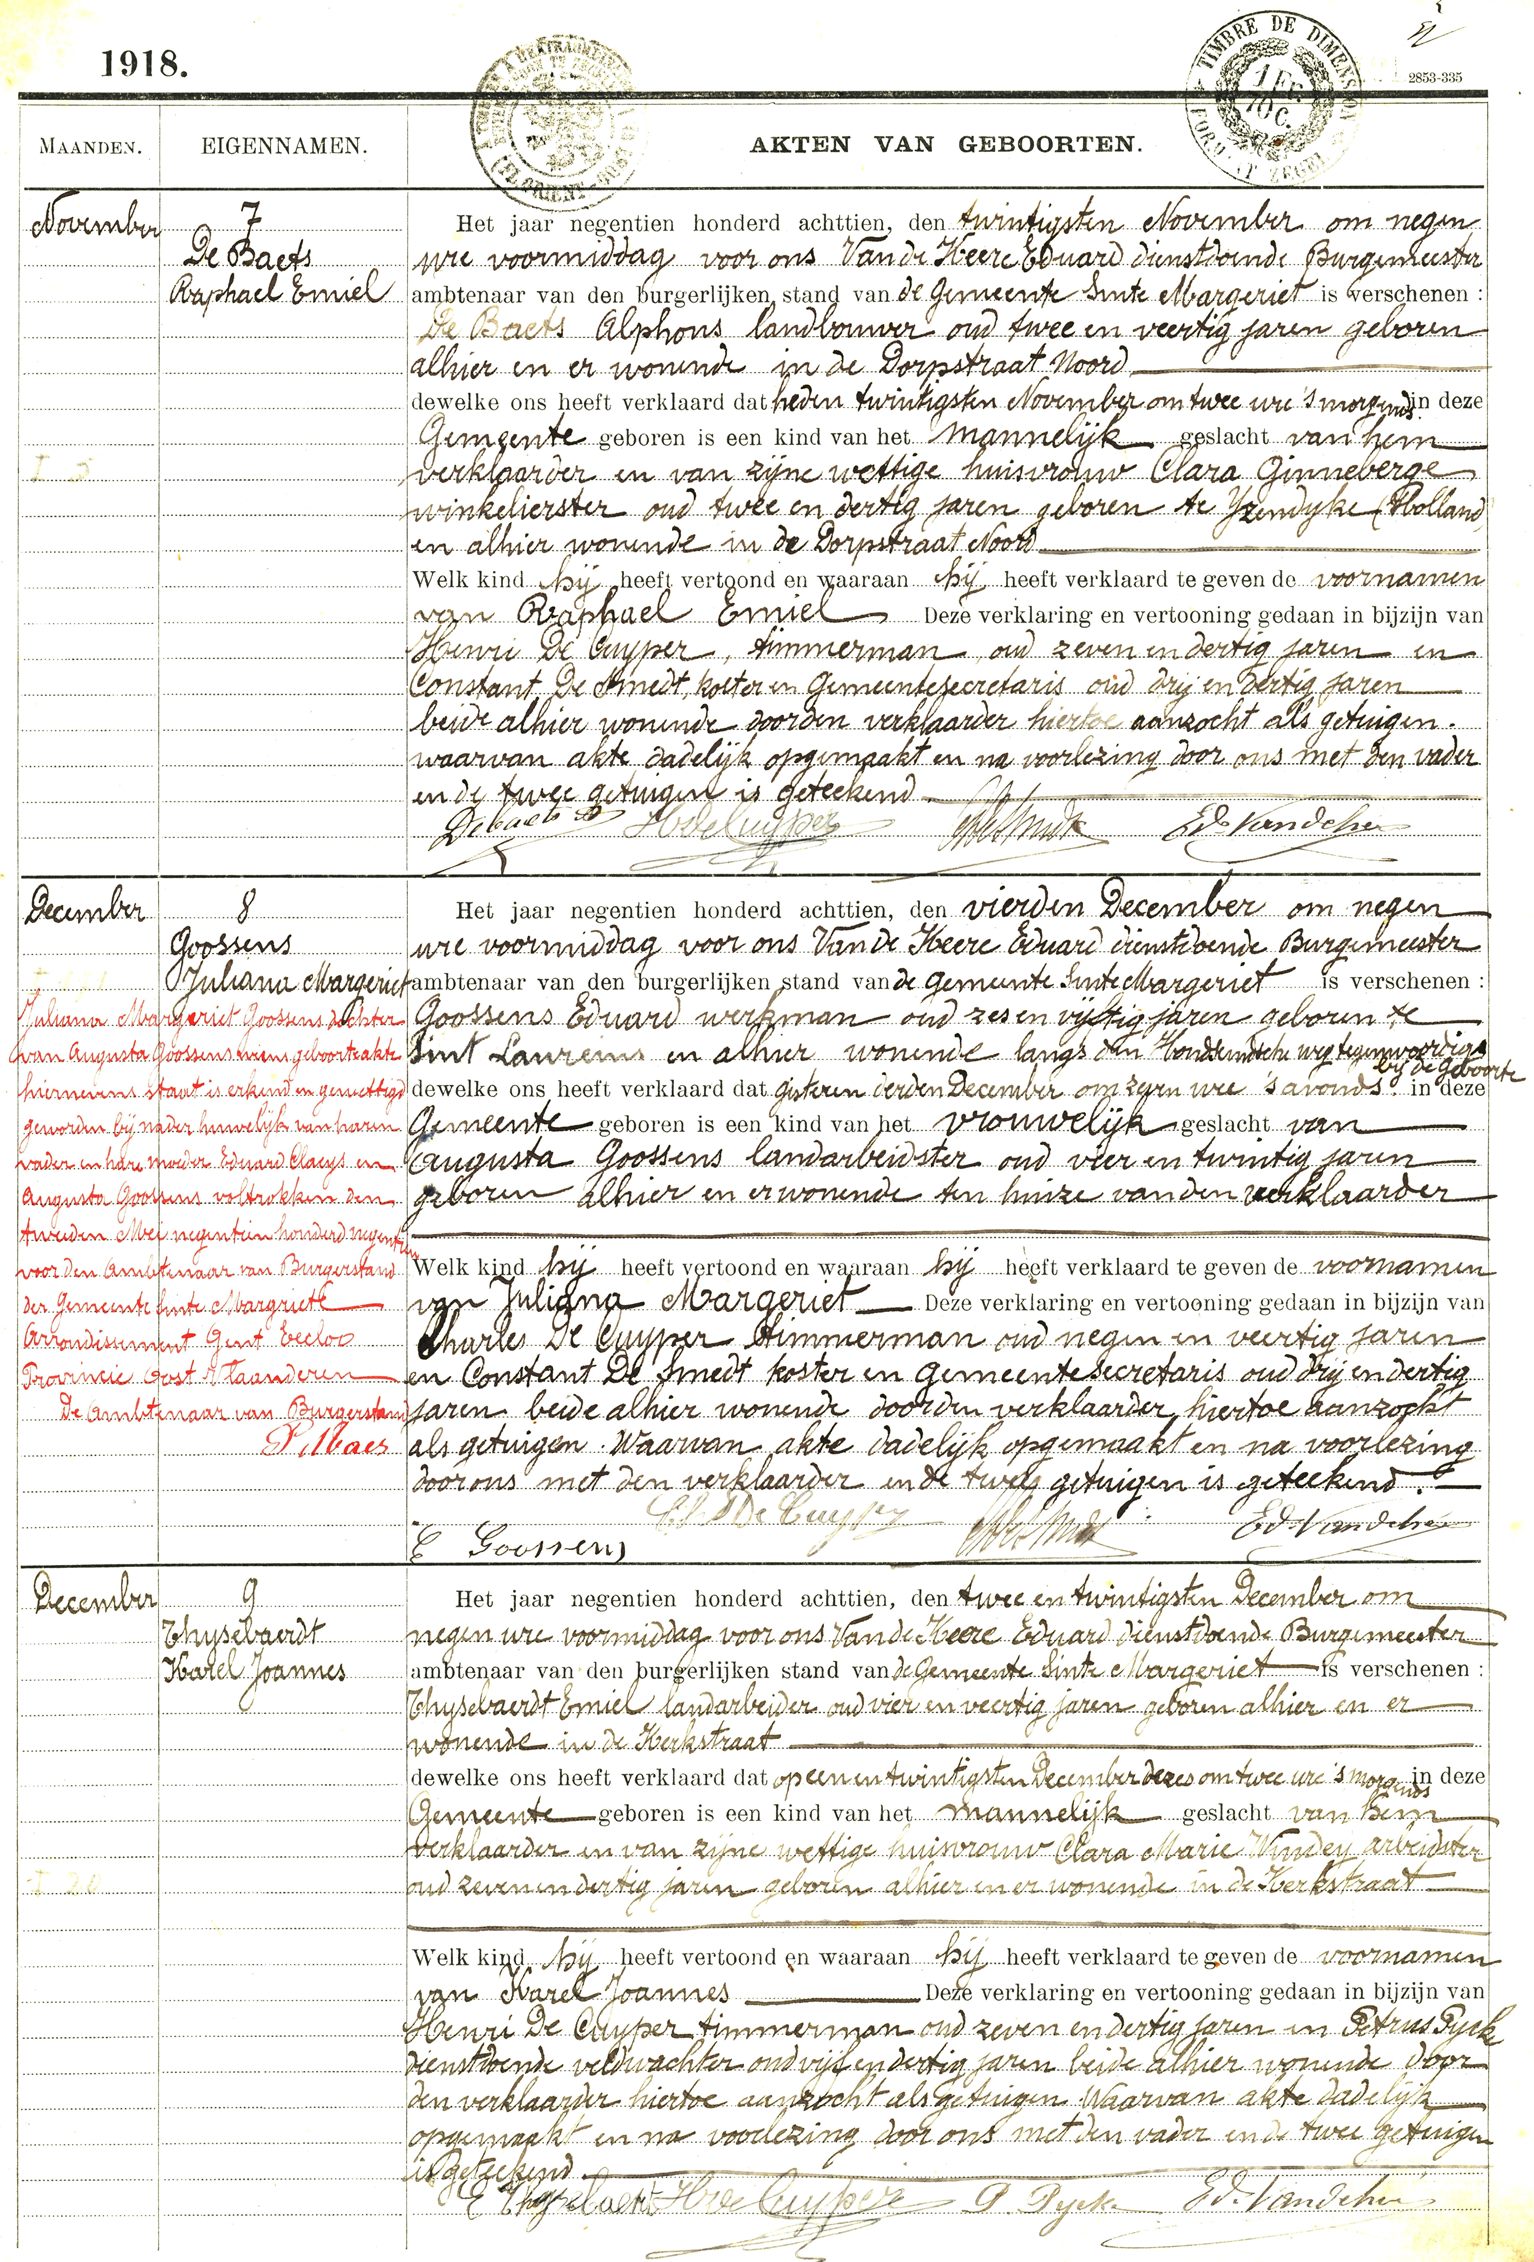 1918.
TIMBRE DE DIMENSION
1 FR.
10 C.
FORMAAT ZEGEL
2853-335
MAANDEN.
EIGENNAMEN.
AKTEN VAN GEBOORTEN.
November
7
De Baets
Raphael Emiel
Het jaar negentien honderd achttien, den twintigsten November om negen
ure voormiddag voor ons Van de Keere Eduard dienstdoende Burgemeester
ambtenaar van den burgerlijken stand van de Gemeente Sinte Margeriet is verschenen :
De Baets Alphons landbouwer oud twee en veertig jaren geboren
alhier en er wonende in de Dorpstraat Noord
dewelke ons heeft verklaard dat heden twintigsten November om twee ure 's morgends in deze
Gemeente geboren is een kind van het mannelijk geslacht van hem
verklaarder en van zijne wettige huisvrouw Clara Ginneberge
winkelierster oud twee en dertig jaren geboren te Yzendyke (Holland)
en alhier wonende in de Dorpstraat Noord
Welk kind hij heeft vertoond en waaraan hij heeft verklaard te geven de voornamen
van Raphael Emiel Deze verklaring en vertooning gedaan in bijzijn van
Henri De Cuyper, timmerman oud zeven en dertig jaren en
Constant De Smedt, koster en Gemeentesecretaris oud drij en dertig jaren
beide alhier wonende door den verklaarder hiertoe aanzocht als getuigen.
waarvan akte dadelijk opgemaakt en na voorlezing door ons met den vader
en de twee getuigen is geteekend
Debaets H De Cuyper C De Smedt Ed. Vandekeere
December
8
Goossens
Juliana Margeriet
Juliana Margeriet Goossens dochter
van Augusta Goossens wiens geboorteakte
hiernevens staat is erkend en gewettigd
geworden bij nader huwelijk van haren
vader en hare moeder Eduard Claeys en
Augusta Goossens voltrokken den
tweeden Mei negentien honderd negentien
voor den Ambtenaar van Burgerstand
der Gemeente Sinte Margriete
Arrondissement Gent Eecloo
Provincie Oost Vlaanderen
De Ambtenaar van Burgerstand
P. Maes
Het jaar negentien honderd achttien, den vierden December om negen
ure voormiddag voor ons Van de Keere Eduard dienstdoende Burgemeester
ambtenaar van den burgerlijken stand van de Gemeente Sinte Margeriet is verschenen :
Goossens Eduard werkman oud zes en vijftig jaren geboren te
Sint Laureins en alhier wonende langs den Hondseindsche weg tegenwoordig
bij de geboorte
dewelke ons heeft verklaard dat gisteren derden December om zeven ure 's avonds in deze
Gemeente geboren is een kind van het vrouwelijk geslacht van
Augusta Goossens landarbeidster oud vier en twintig jaren
geboren alhier en er wonende ten huize van den verklaarder
Welk kind hij heeft vertoond en waaraan hij heeft verklaard te geven de voornamen
van Juliana Margeriet Deze verklaring en vertooning gedaan in bijzijn van
Charles De Cuyper timmerman oud negen en veertig jaren
en Constant De Smedt koster en gemeentesecretaris oud drij en dertig
jaren beide alhier wonende door den verklaarder hiertoe aanzocht
als getuigen. Waarvan akte dadelijk opgemaakt en na voorlezing
door ons met den verklaarder en de twee getuigen is geteekend.
E Goossens Ch De Cuyper C De Smedt Ed. Vandekeere
December
9
Thysebaerdt
Karel Joannes
Het jaar negentien honderd achttien, den twee en twintigsten December om
negen ure voormiddag voor ons Van de Keere Eduard dienstdoende Burgemeester
ambtenaar van den burgerlijken stand van de Gemeente Sinte Margeriet is verschenen :
Thysebaerdt Emiel landarbeider oud vier en veertig jaren geboren alhier en er
wonende in de Kerkstraat
dewelke ons heeft verklaard dat op een en twintigsten December dezes om twee ure 's morgends in deze
Gemeente geboren is een kind van het mannelijk geslacht van hem
verklaarder en van zijne wettige huisvrouw Clara Marie Windey arbeidster
oud zeven en dertig jaren geboren alhier en er wonende in de Kerkstraat
Welk kind hij heeft vertoond en waaraan hij heeft verklaard te geven de voornamen
van Karel Joannes Deze verklaring en vertooning gedaan in bijzijn van
Henri De Cuyper timmerman oud zeven en dertig jaren en Petrus Pycke
dienstdoende veldwachter oud vijf en dertig jaren beide alhier wonende door
den verklaarder hiertoe aanzocht als getuigen. Waarvan akte dadelijk
opgemaakt en na voorlezing door ons met den vader en de twee getuigen
is geteekend
E Thysebaert H De Cuyper P. Pycke Ed. Vandekeere